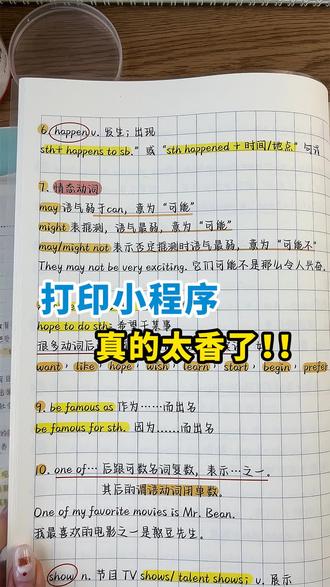 6. happen v. 发生；出现
sth+ happens to sb." 或 "sth happened + 时间/地点" 句式
7. 情态动词
may 语气弱于can, 意为 "可能"
might 表推测, 语气最弱, 意为 "可能"
may/might not 表示否定推测时语气最弱, 意为 "可能不"
They may not be very exciting. 它们可能不是那么令人兴奋.
打印小程序
hope to do sth: 希望干某事
很多动词后
真的太香了!!
want, like, hope, wish, learn, start, begin, prefer
9. be famous as 作为……而出名
be famous for sth. 因为……而出名
10. one of… 后跟可数名词复数, 表示…之一.
其后的谓语动词用单数.
One of my favorite movies is Mr. Bean.
我最喜欢的电影之一是憨豆先生.
show n. 节目 TV shows/ talent shows; v. 展示